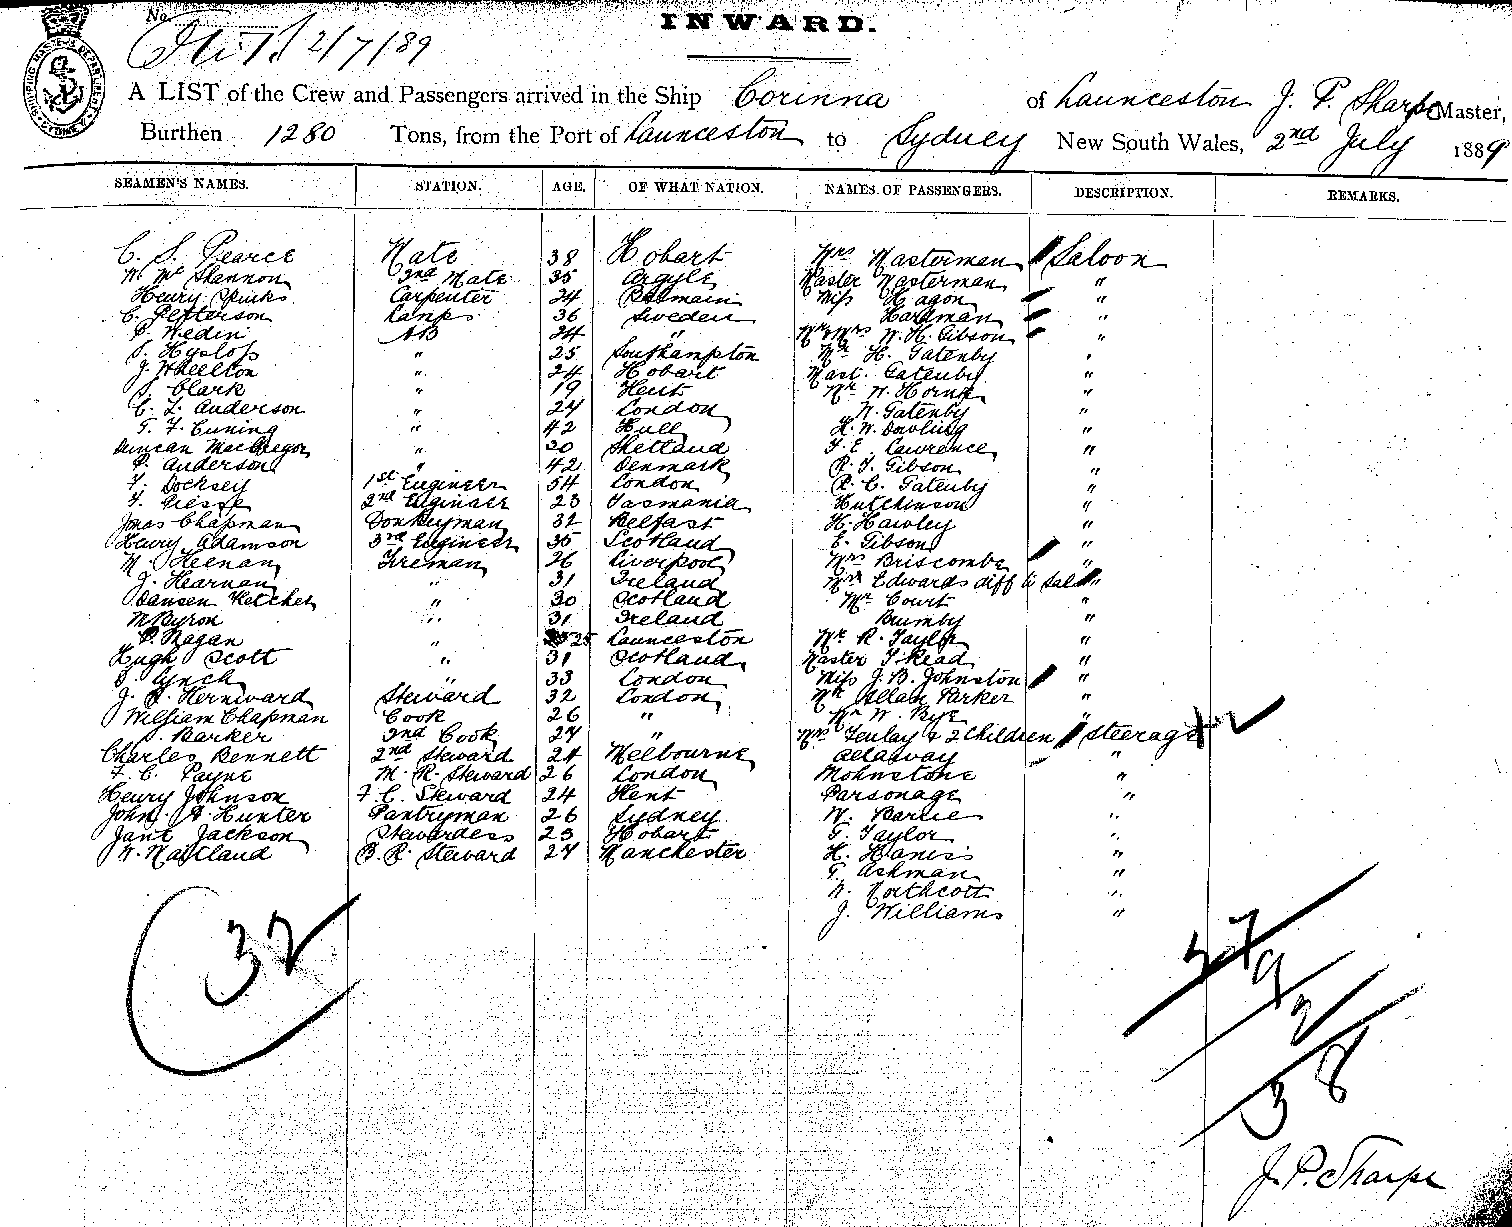 No.
2/7/89
INWARD.
A LIST of the Crew and Passengers arrived in the Ship Corinna of Launceston J. P. Sharpe Master,
Burthen 1280 Tons, from the Port of Launceston to Sydney New South Wales, 2nd July 1889
SEAMEN'S NAMES. STATION. AGE. OF WHAT NATION. NAMES OF PASSENGERS. DESCRIPTION. REMARKS.
C. S. Pearce Mate 38 Hobart Mrs Masterman Saloon
W. Mc Shannon 2nd Mate 35 Argyle Master Masterman "
Henry Spinks Carpenter 24 Balmain Miss Hagon "
C. Pefferson Lamps 36 Sweden Hardman "
P. Wedin AB 24 " Mr & Mrs W. H. Gibson "
S. Hyslop " 25 Southampton Mr H. Gatenby "
J. Wheelton " 24 Hobart Mast. Gatenby "
Clark " 19 Kent Mr W. Horne "
C. L. Anderson " 24 London W. Gatenby "
T. F. Cuning " 42 Hull H. W. Dowling "
Duncan MacGregor " 30 Shetland F. E. Lawrence "
P. Anderson " 42 Denmark R. J. Gibson "
F. Docksey 1st Engineer 54 London R. C. Gatenby "
F. Piesse 2nd Engineer 23 Tasmania Hutchinson "
Jonas Chapman Donkeyman 32 Belfast H. Hawley "
Henry Adamson 3rd Engineer 35 Scotland E. Gibson "
M. Heenan Fireman 26 Liverpool Mrs Briscombe "
J. Hearnan " 31 Ireland Mrs Edwards diff to Sal "
Dansen Ketchen " 30 Scotland Mr Court "
M Byron " 31 Ireland Brumby "
P. Nagan " 25 Launceston Mr R. Taylor "
Hugh Scott " 31 Scotland Master T. Read "
Lynch " 33 London Miss J. B. Johnston "
J. Herniward Steward 32 London Mr Allan Parker "
William Chapman Cook 26 " Mr W. Bye "
S. Barker 2nd Cook 27 " Mrs Fenlay & 2 children steerage
Charles Bennett 2nd Steward 24 Melbourne Delaway "
F. C. Payne M. R. Steward 26 London Mohnstone "
Henry Johnson F. C. Steward 24 Kent Parsonage "
John A Hunter Pantryman 26 Sydney W. Barlie "
Jane Jackson Stewardess 23 Hobart T. Taylor "
W. Maitland B. R. Steward 27 Manchester H. Haniss "
T. Ashman "
W. Northcott "
J. Williams "
32
27
9
2
38
J. P. Sharpe